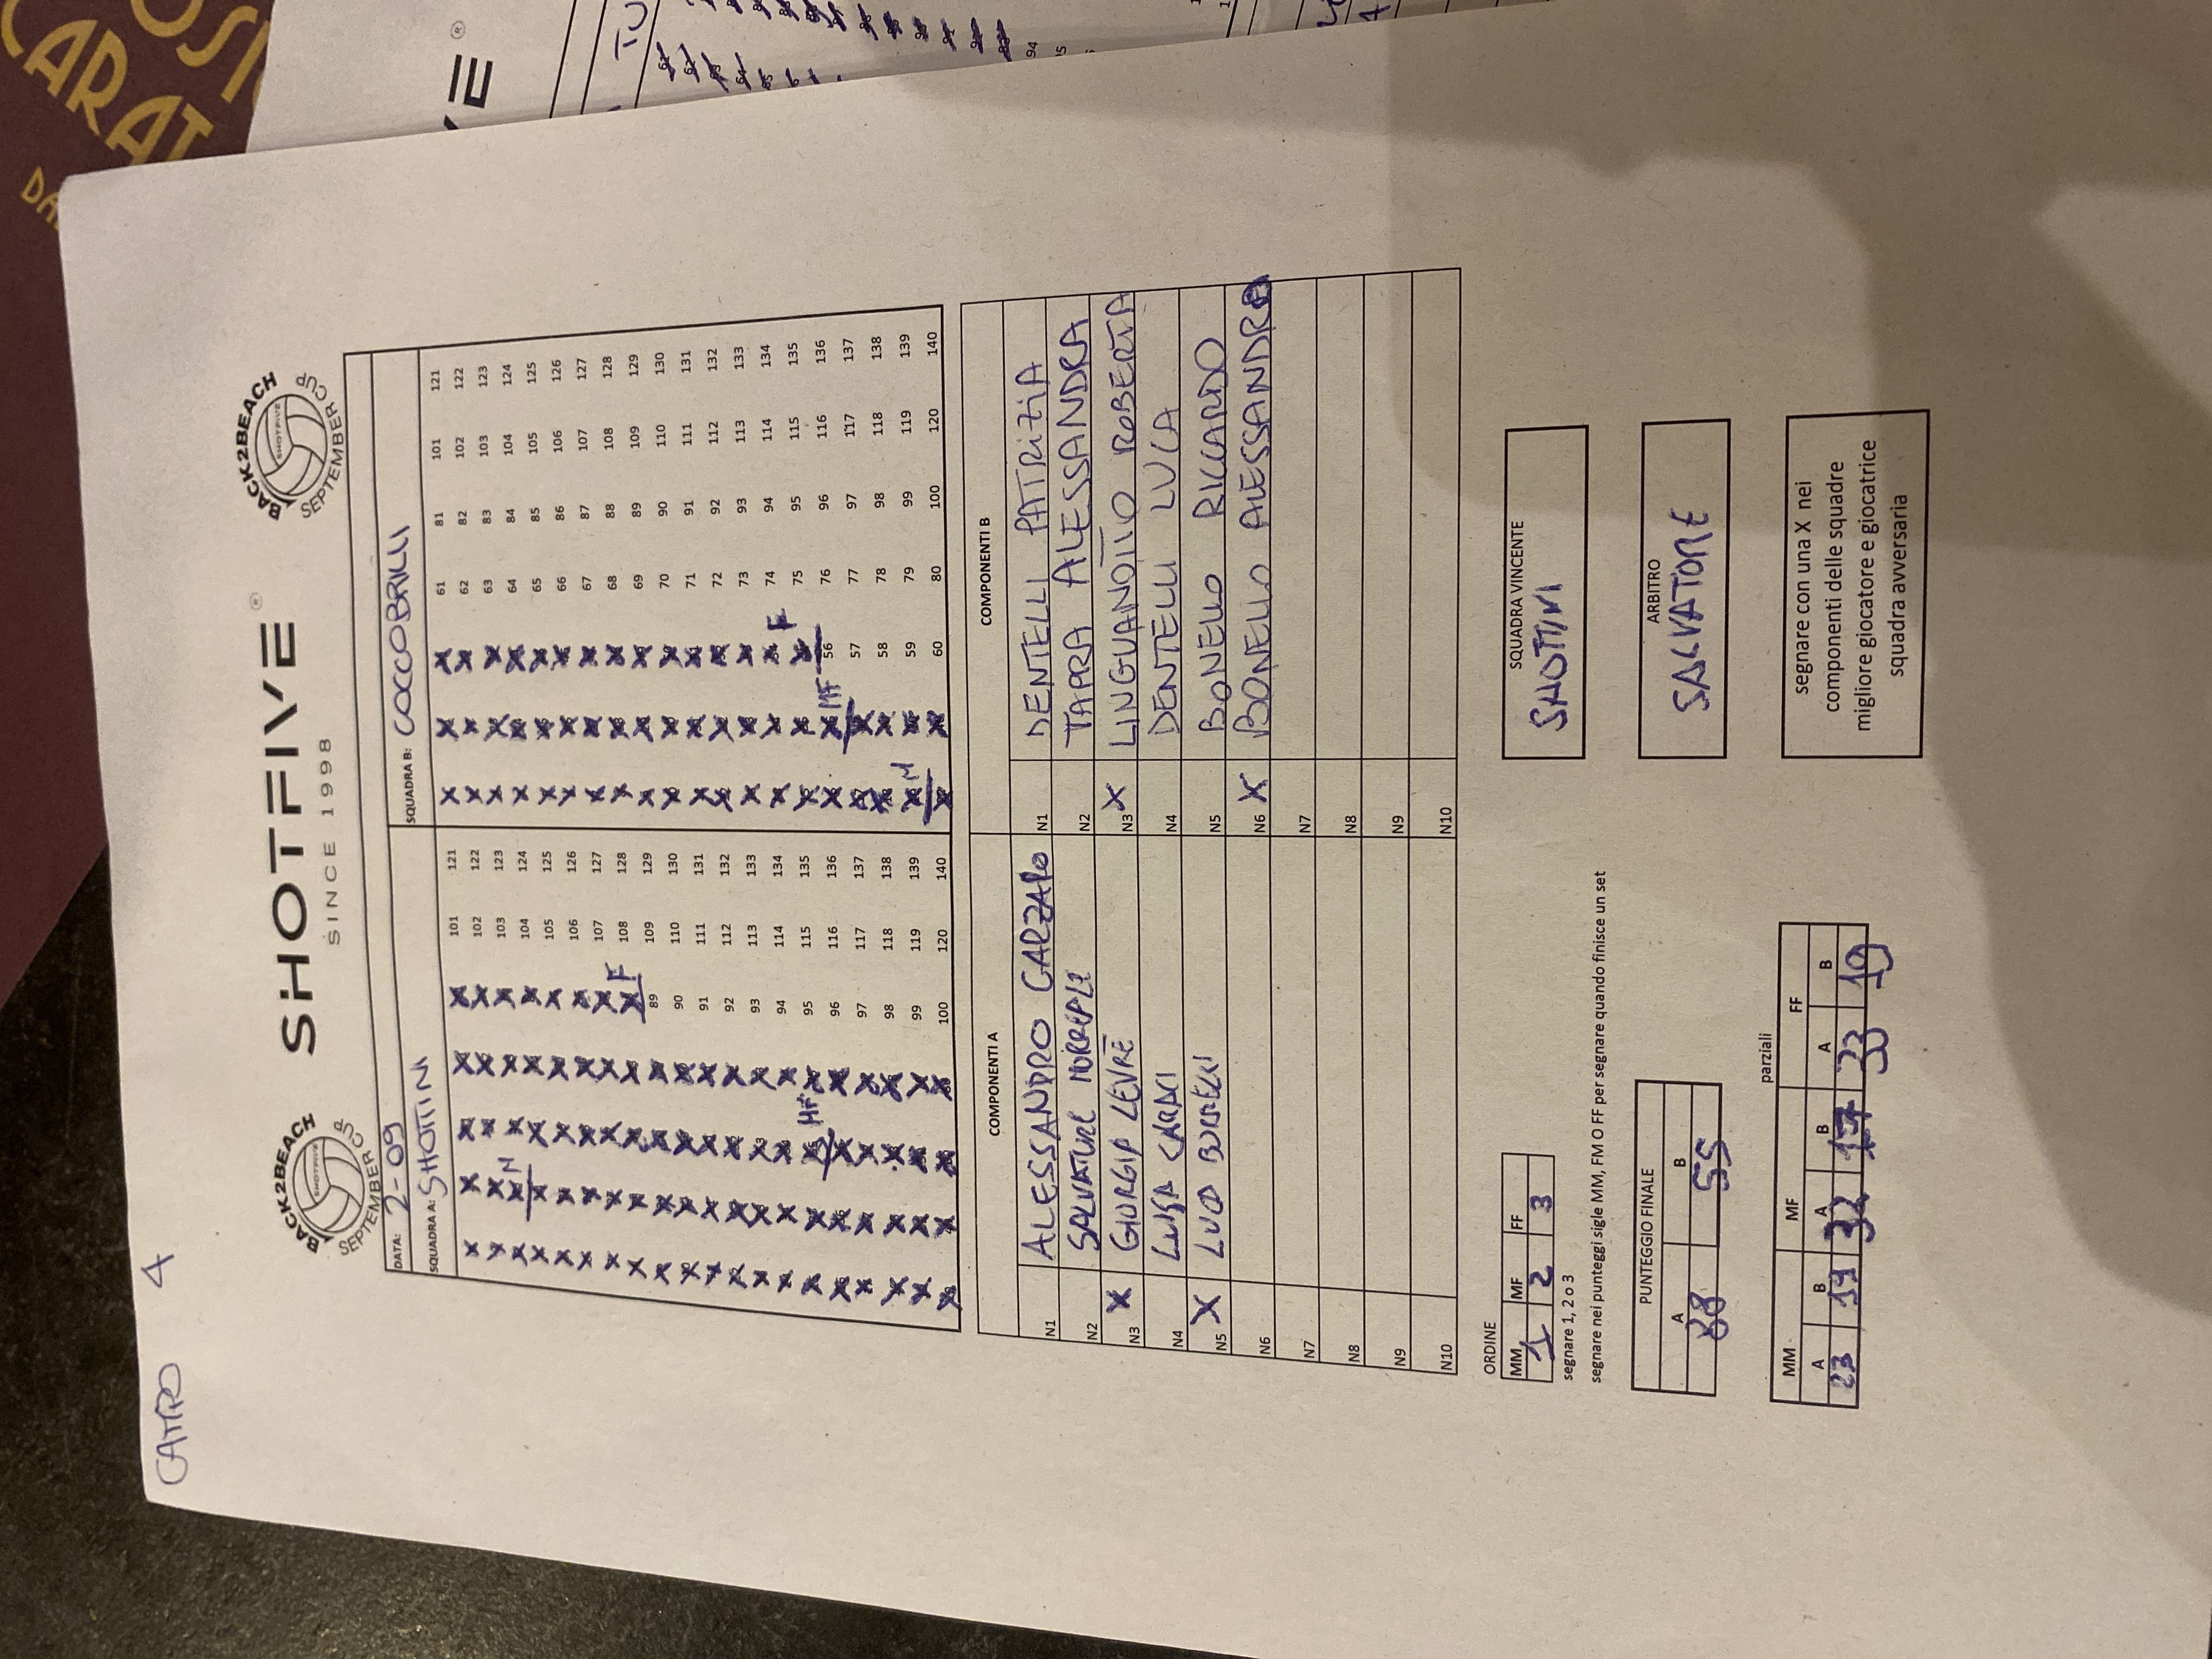 CAMPO 4
BACK2BEACH
SHOTFIVE
SEPTEMBER CUP
SHOTFIVE ®
SINCE 1998
BACK2BEACH
SHOTFIVE
SEPTEMBER CUP
DATA: 2-09
SQUADRA A: SHOTTINI
SQUADRA B: COCCOBRILLI
101 121 61 81 101 121
102 122 62 82 102 122
103 123 63 83 103 123
104 124 64 84 104 124
105 125 65 85 105 125
106 126 66 86 106 126
107 127 67 87 107 127
108 128 68 88 108 128
89 109 129 69 89 109 129
90 110 130 70 90 110 130
91 111 131 71 91 111 131
92 112 132 72 92 112 132
93 113 133 73 93 113 133
94 114 134 74 94 114 134
95 115 135 75 95 115 135
96 116 136 56 76 96 116 136
97 117 137 57 77 97 117 137
98 118 138 58 78 98 118 138
99 119 139 59 79 99 119 139
100 120 140 60 80 100 120 140
M MF F M MF F
COMPONENTI A COMPONENTI B
N1 ALESSANDRO N1 DENTELLI PATRIZIA
N2 SALVATORE N2 TAPRA ALESSANDRA
N3 X GIORGIA LEVRÈ N3 X LINGUANOTTO ROBERTA
N4 LUISA N4 DENTELLI LUCA
N5 X N5 BONELLO RICCARDO
N6 N6 X BONELLO ALESSANDRO
N7 N7
N8 N8
N9 N9
N10 N10
ORDINE
MM MF FF
1 2 3
segnare 1, 2 o 3
segnare nei punteggi sigle MM, FM O FF per segnare quando finisce un set
SQUADRA VINCENTE
SHOTTINI
PUNTEGGIO FINALE
A B
88 55
ARBITRO
SALVATORE
parziali
MM MF FF
A B A B A B
23 19 32 17 33 19
segnare con una X nei
componenti delle squadre
migliore giocatore e giocatrice
squadra avversaria
94